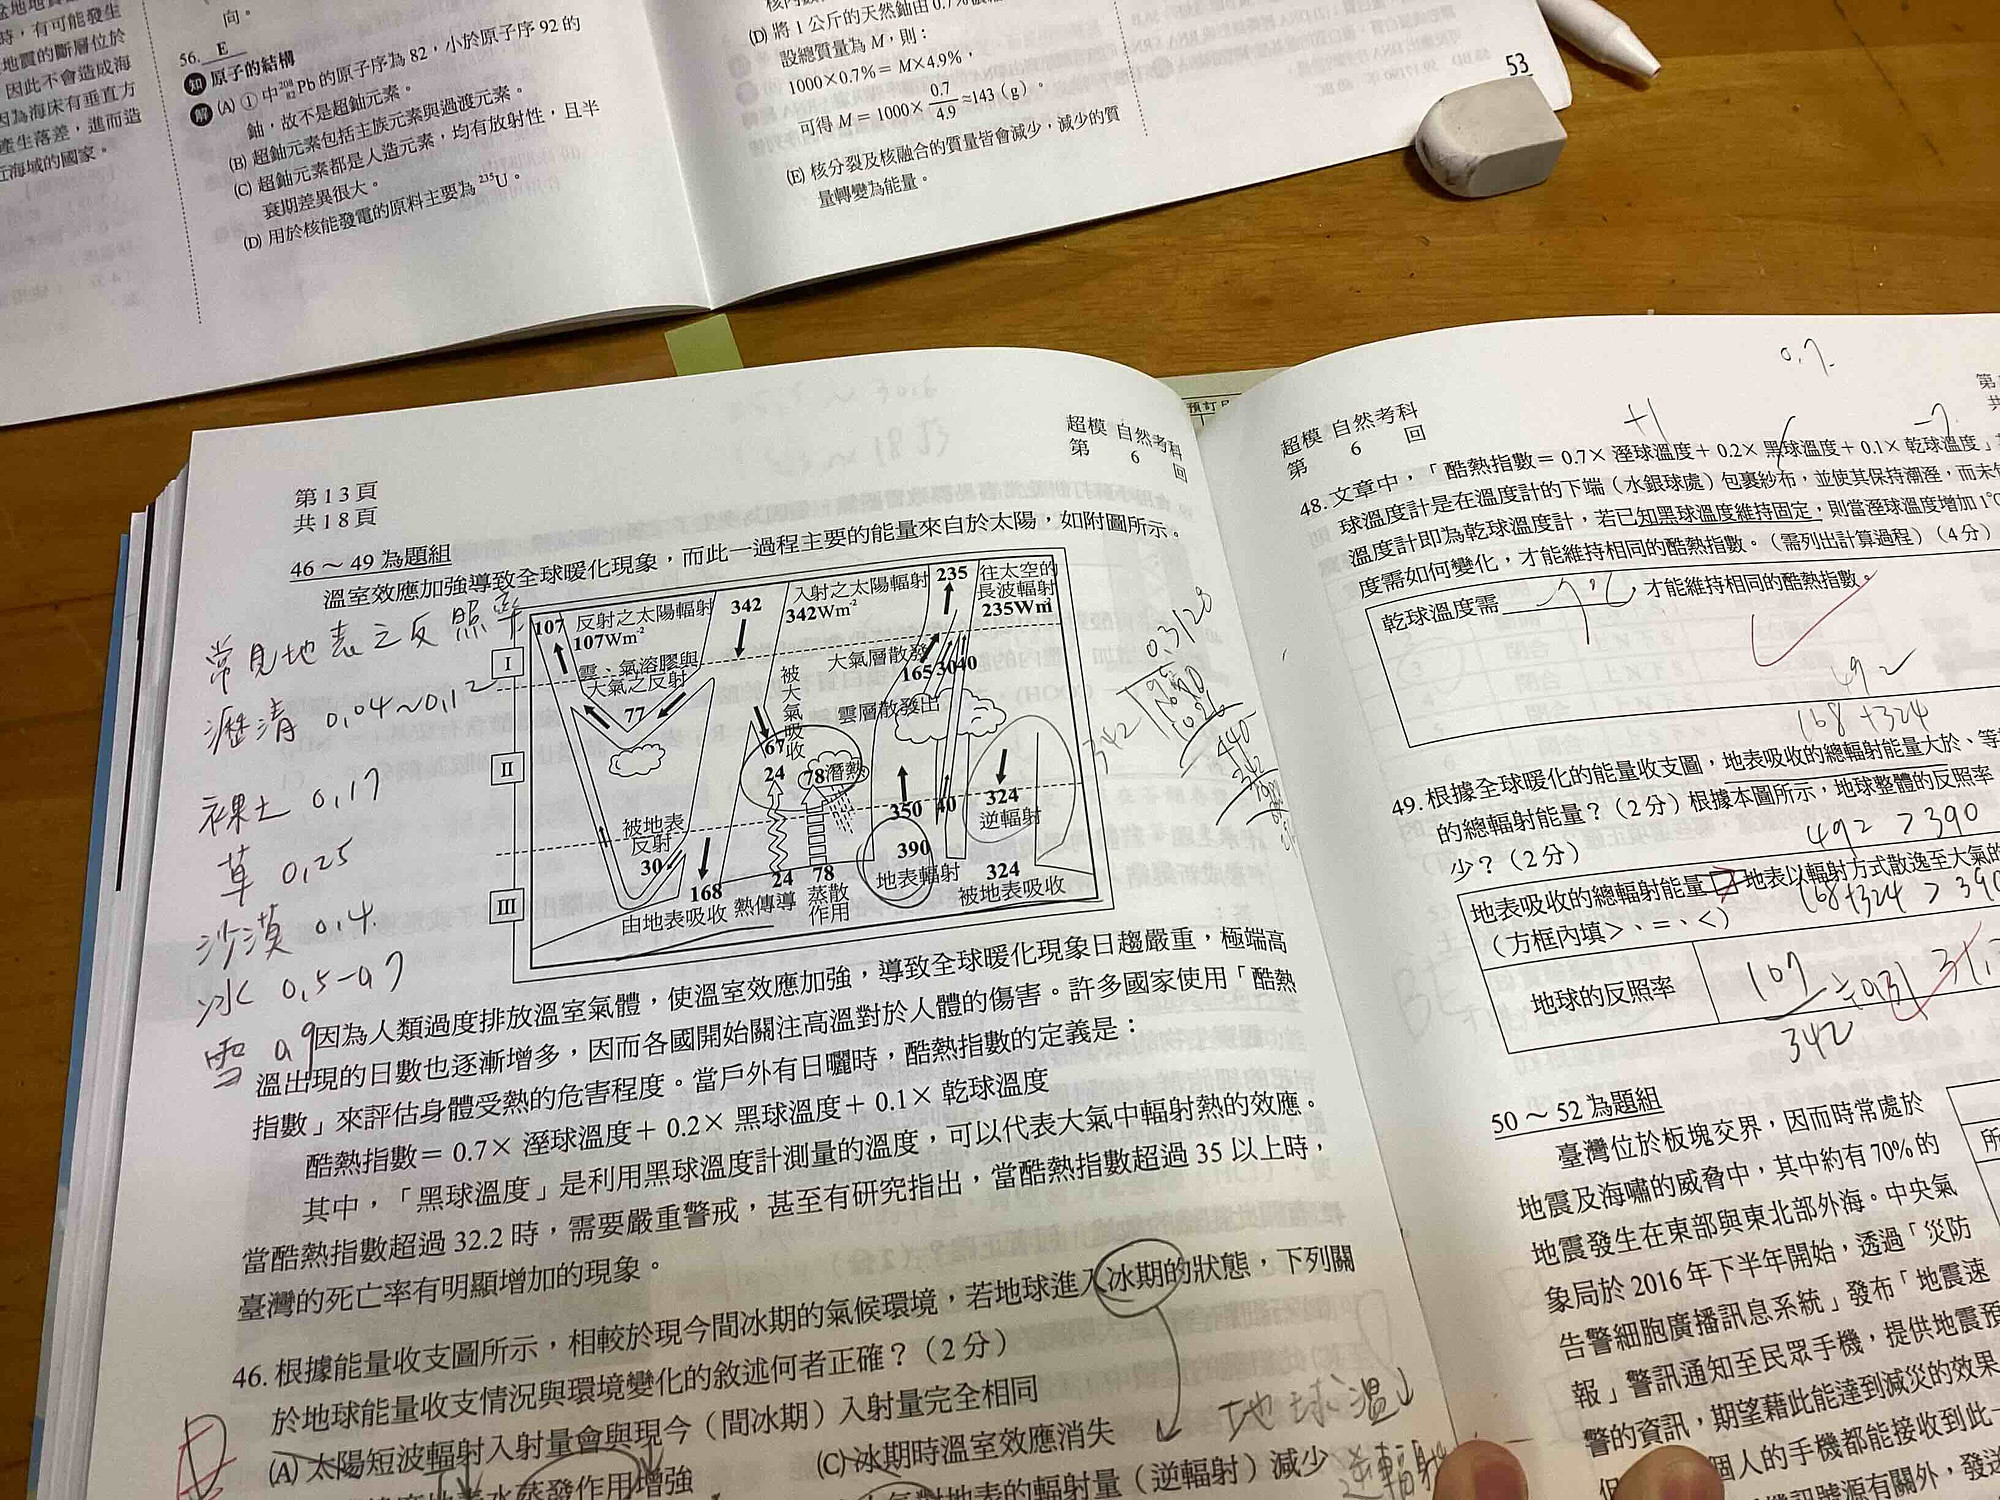 向。
56. E
知 原子的結構
解 (A) ① 中 ²⁰⁸₈₂Pb 的原子序為 82，小於原子序 92 的
鈾，故不是超鈾元素。
(B) 超鈾元素包括主族元素與過渡元素。
(C) 超鈾元素都是人造元素，均有放射性，且半
衰期差異很大。
(D) 用於核能發電的原料主要為 ²³⁵U。
時，有可能發生
地震的斷層位於
因此不會造成海
因為海床有垂直方
產生落差，進而造
近海域的國家。
(D) 將 1 公斤的天然鈾由 0.7%
設總質量為 M，則：
1000×0.7%＝M×4.9%，
可得 M＝1000×0.7/4.9≈143（g）。
(E) 核分裂及核融合的質量皆會減少，減少的質
量轉變為能量。
53
超模 自然考科
第 6 回
第13頁
共18頁
46～49為題組
溫室效應加強導致全球暖化現象，而此一過程主要的能量來自於太陽，如附圖所示。
常見地表之反照率
瀝清 0.04~0.12
裸土 0.17
草 0.25
沙漠 0.4
冰 0.5-0.7
雪 0.9
I
II
III
107 反射之太陽輻射
107Wm⁻²
342
入射之太陽輻射
342Wm⁻²
235
往太空的
長波輻射
235Wm⁻²
雲、氣溶膠與
大氣之反射
77
被大氣吸收
67
大氣層散發
165 30 40
雲層散發出
24 78 潛熱
350 40
324
逆輻射
被地表
反射
30
168
由地表吸收
24
熱傳導
78
蒸散
作用
390
地表輻射
324
被地表吸收
342
因為人類過度排放溫室氣體，使溫室效應加強，導致全球暖化現象日趨嚴重，極端高
溫出現的日數也逐漸增多，因而各國開始關注高溫對於人體的傷害。許多國家使用「酷熱
指數」來評估身體受熱的危害程度。當戶外有日曬時，酷熱指數的定義是：
酷熱指數＝0.7× 溼球溫度＋0.2× 黑球溫度＋0.1× 乾球溫度
其中，「黑球溫度」是利用黑球溫度計測量的溫度，可以代表大氣中輻射熱的效應。
當酷熱指數超過 32.2 時，需要嚴重警戒，甚至有研究指出，當酷熱指數超過 35 以上時，
臺灣的死亡率有明顯增加的現象。
46. 根據能量收支圖所示，相較於現今間冰期的氣候環境，若地球進入冰期的狀態，下列關
於地球能量收支情況與環境變化的敘述何者正確？（2分）
(A) 太陽短波輻射入射量會與現今（間冰期）入射量完全相同
(C) 冰期時溫室效應消失
地球溫↓
水蒸發作用增強
對地表的輻射量（逆輻射）減少
逆輻射
超模 自然考科
第 6 回
0.7
+1
-7
48. 文章中，「酷熱指數＝0.7× 溼球溫度＋0.2× 黑球溫度＋0.1× 乾球溫度」
球溫度計是在溫度計的下端（水銀球處）包裹紗布，並使其保持潮溼，而未
溫度計即為乾球溫度計，若已知黑球溫度維持固定，則當溼球溫度增加 1℃
度需如何變化，才能維持相同的酷熱指數。（需列出計算過程）（4分）
乾球溫度需
，才能維持相同的酷熱指數。
492
168+324
49. 根據全球暖化的能量收支圖，地表吸收的總輻射能量大於、等
的總輻射能量？（2分）根據本圖所示，地球整體的反照率
少？（2分）
492 > 390
地表吸收的總輻射能量 □ 地表以輻射方式散逸至大氣的
（方框內填＞、＝、＜）
168+324 > 390
地球的反照率
107/342 ≒ 0.31
50～52為題組
臺灣位於板塊交界，因而時常處於
地震及海嘯的威脅中，其中約有 70% 的
地震發生在東部與東北部外海。中央氣
象局於 2016 年下半年開始，透過「災防
告警細胞廣播訊息系統」發布「地震速
報」警訊通知至民眾手機，提供地震預
警的資訊，期望藉此能達到減災的效果
個人的手機都能接收到此
訊號源有關外，發送